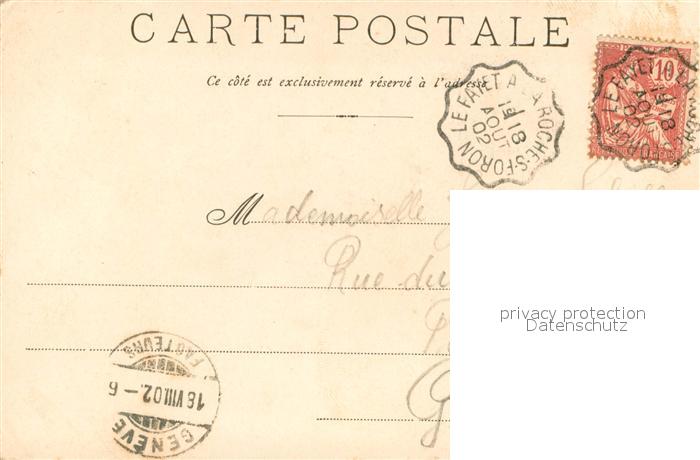 CARTE POSTALE
Ce côté est exclusivement réservé à l'adresse
LE FAYET A LA ROCHE-S-FORON
1E
18
AOUT
02
10
LE FAYET A LA ROCHE-S-FORON
1E
18
AOUT
02
Mademoiselle
Rue du
privacy protection
Datenschutz
FACTEURS
18 VIII.02.–6
GENÈVE